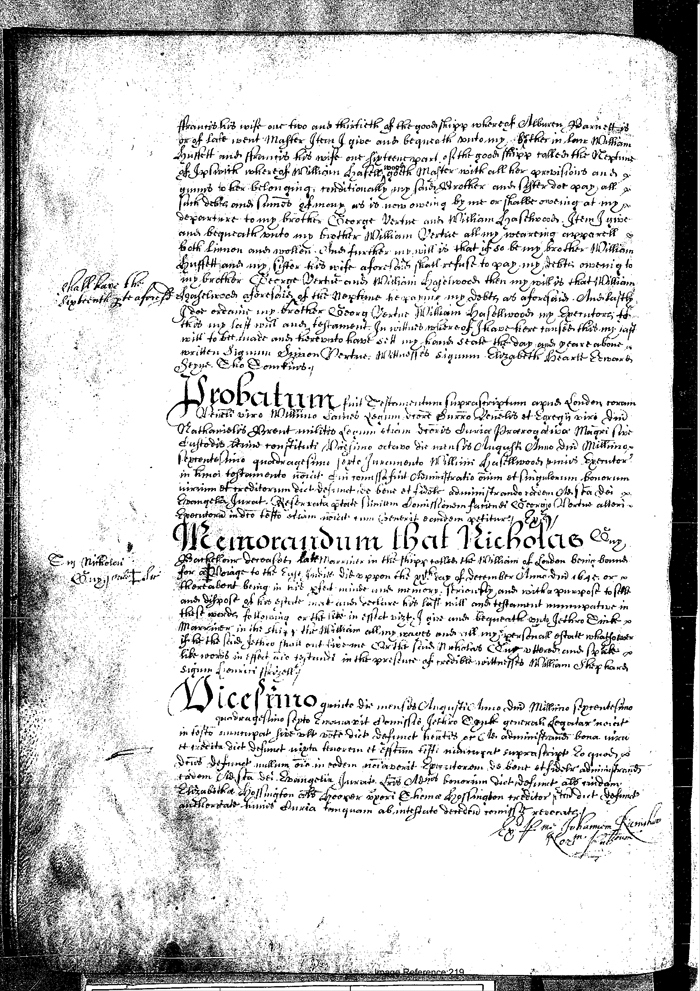 ffrancis his wife one two and thirtieth of the good shipp whereof Alburen Barnett is
or of late went Master Item I give and bequeath unto my brother in lawe William
Hussett and ffrancis his wife one sixteene part of the good shipp called the Neptune
of Ipswich whereof William Hasellwood goeth Master with all her provisions and
gunns to her belonging, conditionally my said Brother and sister doe pay all
such debts and summes of mony as is now oweing by me or shalbe oweing at my
departure to my brother George Vertue and William Haselwoode, Item I give
and bequeath unto my brother William Vertue all my weareing apparell
both linnon and wollen. And further my will is that if so be my brother William
Hussett and my sister his wife aforesaid shall refuse to pay my debts oweing to
my brother George Vertue and William Hasellwoode then my will is that William
shall have the
sixteenth pte aforesd
Haselwood aforesaid of the Neptune he paying my debts as aforesaid. And lastly
I doe ordaine my brother Georg Vertue William Hasellwood my Executors to
this my last will and testament. In witnes whereof I have here caused this my last
will to be made and thereunto have sett my hand Seale the day and yeare above
written Signum Symon Vertue. Witnesses Signum Elizabeth Hearle Edward
Tho Tomkins
Probatum fuit Testamentum suprascriptum apud London coram
Venli viro Willimo James Legum dcore Surrogato Venelis et Egregij viri dni
Nathanielis Brent militis Legum etiam dcoris Curiæ Prærogativæ Magri sive
Custodis ltime constituti Vicesimo octavo die mensis Augusti Anno dni Millimo
sexcentesimo quadragesimo sexto Juramento Willimi Hasellwood unius Executor
in hmoi testamento noiat Cui comissa fuit Administratio oium et singulorum bonorum
iurium et creditorum dict defunct de bene et fideliter administrando eadem Ad sta dei
Evangelia Jurat. Reservata ptate similem Comissionem faciendi Georgio Vertue alteri
Executorum in dco testo etiam noiat cum venerit eandem petitur Ex
Memorandum that Nicholas Guy
T. m Nicholai
Guy
Batchelour deceased late Marriner in the shipp called the William of London being bound
for a Voiage to the East Indies did uppon the day of december Anno dni 1645 or
thereabout being in his pfect minde and memory, seriously and with a purpose to settle
and dispose of his estate make and declare his last will and testament nuncupative in
these words following or the like in effect vizt. I give and bequeath unto Jethro Tink
Marriner in the shipp the William all my wages and all my personall estate whatsoever
if he the said Jethro shall out live me Or the said Nicholas Guy uttered and spake
like words in effect in the presence of credible wittnesses William Shephard
signum Henrici
Vicesimo quinto die mensis Augusti Anno dni Millimo sexcentesimo
quadragesimo septo Emanavit Comissio Jethro Tink generali Legatar noiat
in testo nuncupat sive ult volte dict defunct hentis &c Ad administrand bona iura
et credita dict defunct iuxta tenorem et effctum testi nuncupat suprascript Eo quod
dcus defunct nullum oio in eodem noiaverit Executorem, de bene et fideliter administrand
eadem Ad sta dei Evangelia Jurat Lris Adms bonorum dict defunct als cuidam
Elizabethæ Hossington als Hooper uxori Thomæ Hossington creditor dict defuncti
authoritate huius Curiæ tanquam ab intestato deceden comiss revocatis
Ex
Image Reference 219